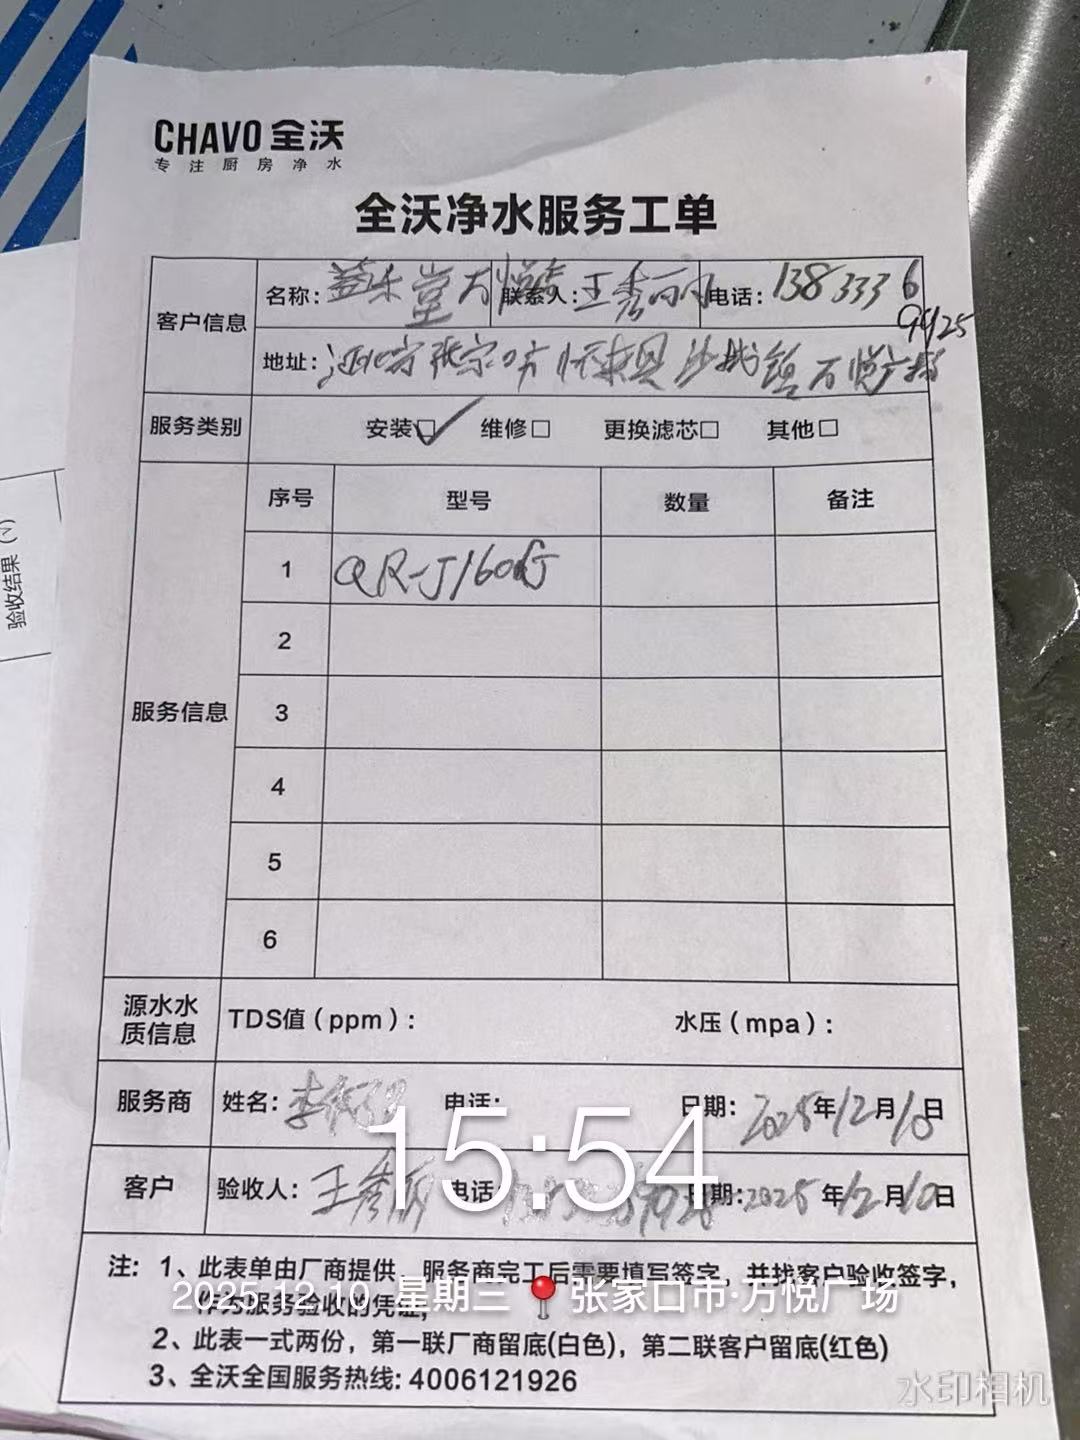 CHAVO 全沃
专注厨房净水
全沃净水服务工单
客户信息
名称：益乐堂万悦店 联系人：王秀丽 电话：138 333 6 9925
地址：怀来县沙城镇万悦广场
服务类别 安装☑ 维修□ 更换滤芯□ 其他□
服务信息
序号 型号 数量 备注
1 QR-J160
2
3
4
5
6
源水水质信息 TDS值（ppm）： 水压（mpa）：
服务商 姓名：李 电话： 日期：2025年12月10日
客户 验收人：王秀丽 电话： 日期：2025年12月10日
15:54
注：1、此表单由厂商提供，服务商完工后需要填写签字，并找客户验收签字，
作为服务验收的凭证；
2025.12.10 星期三 张家口市·万悦广场
2、此表一式两份，第一联厂商留底(白色)，第二联客户留底(红色)
3、全沃全国服务热线：4006121926
水印相机
验收结果（√）